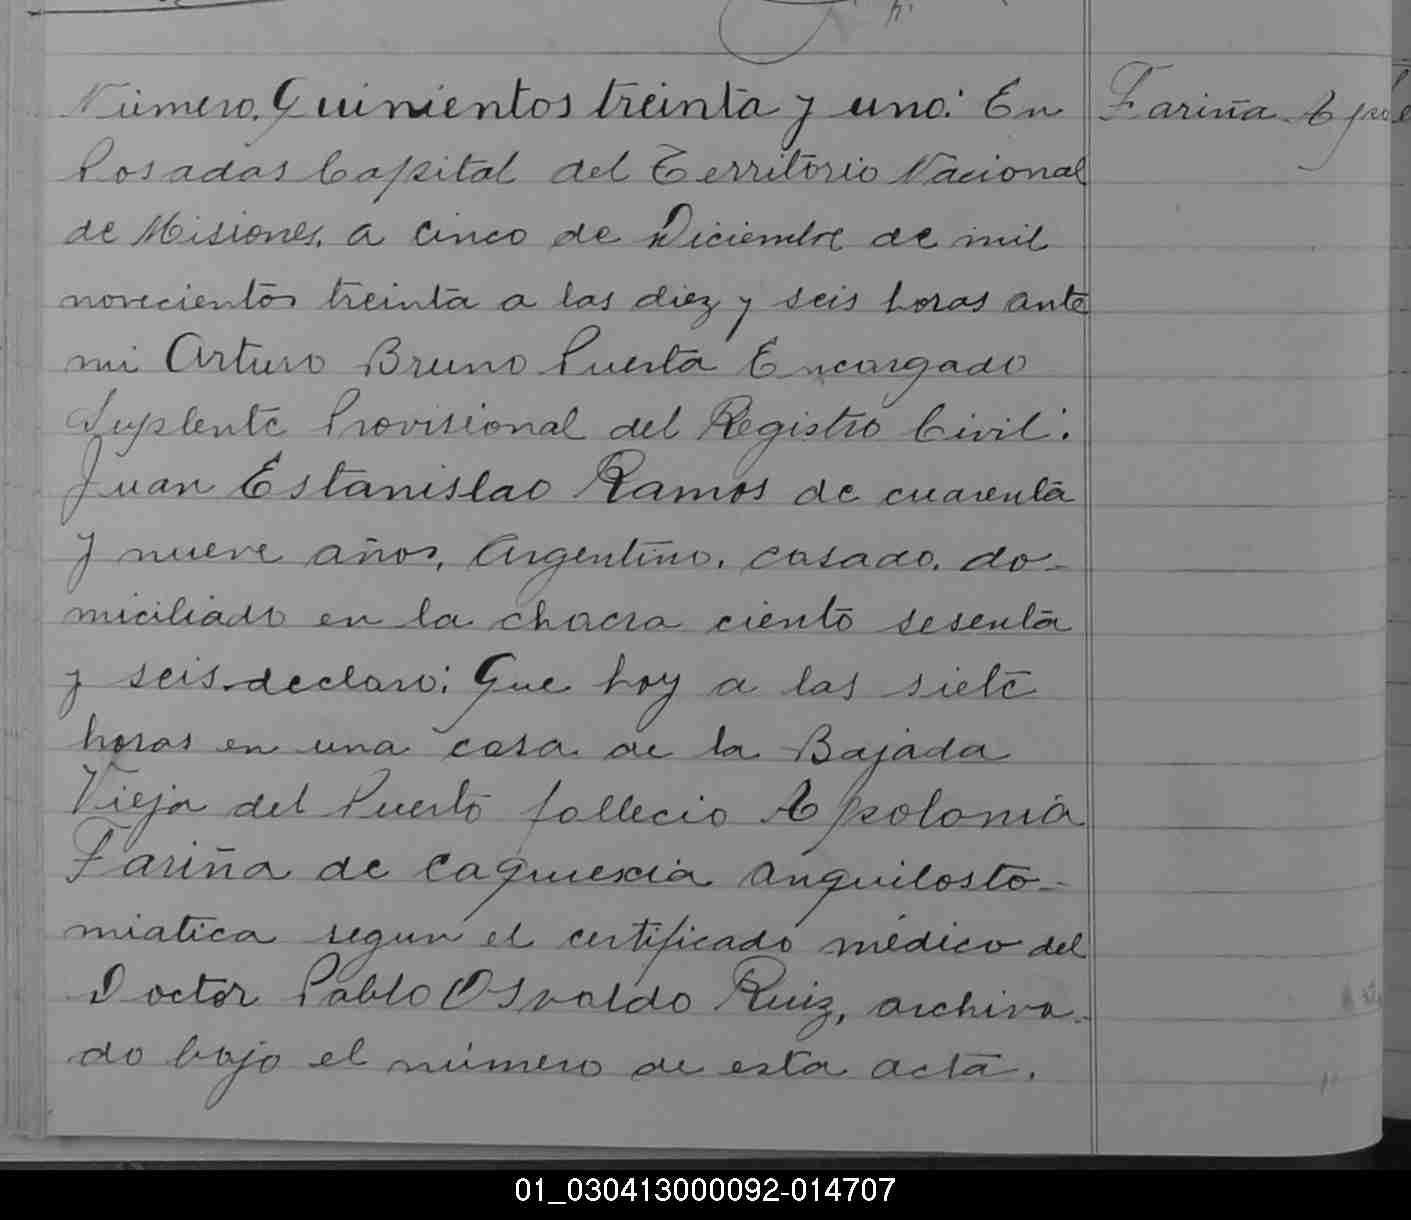 Número. Quinientos treinta y uno: En
Posadas Capital del Territorio Nacional
de Misiones, a cinco de Diciembre de mil
novecientos treinta a las diez y seis horas ante
mi Arturo Bruno Puerta Encargado
Suplente Provisional del Registro Civil:
Juan Estanislao Ramos de cuarenta
y nueve años, Argentino, casado, do-
miciliado en la chacra ciento sesenta
y seis declaro: Que hoy a las siete
horas en una casa de la Bajada
Vieja del Puerto fallecio Apolonia
Fariña de Caquexia anquilosto-
miatica segun el certificado médico del
Doctor Pablo Osvaldo Ruiz, archiva-
do bajo el número de esta acta.
Fariña Apol
01_030413000092-014707